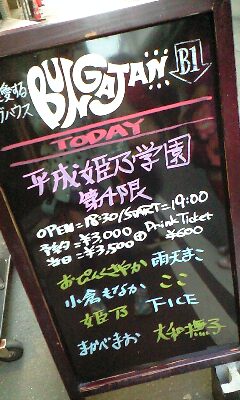 愛する
ブハウス
BUNGATAN
B1
TODAY
平成姫乃学園
第4限
OPEN=18:30/START=19:00
予約=¥3,000
当日=¥3,500 ⊕ Drink Ticket ¥600
おぴんくさやか 雨天まこ
小倉もなか ここ
姫乃 FICE
まかべまお 大和撫子